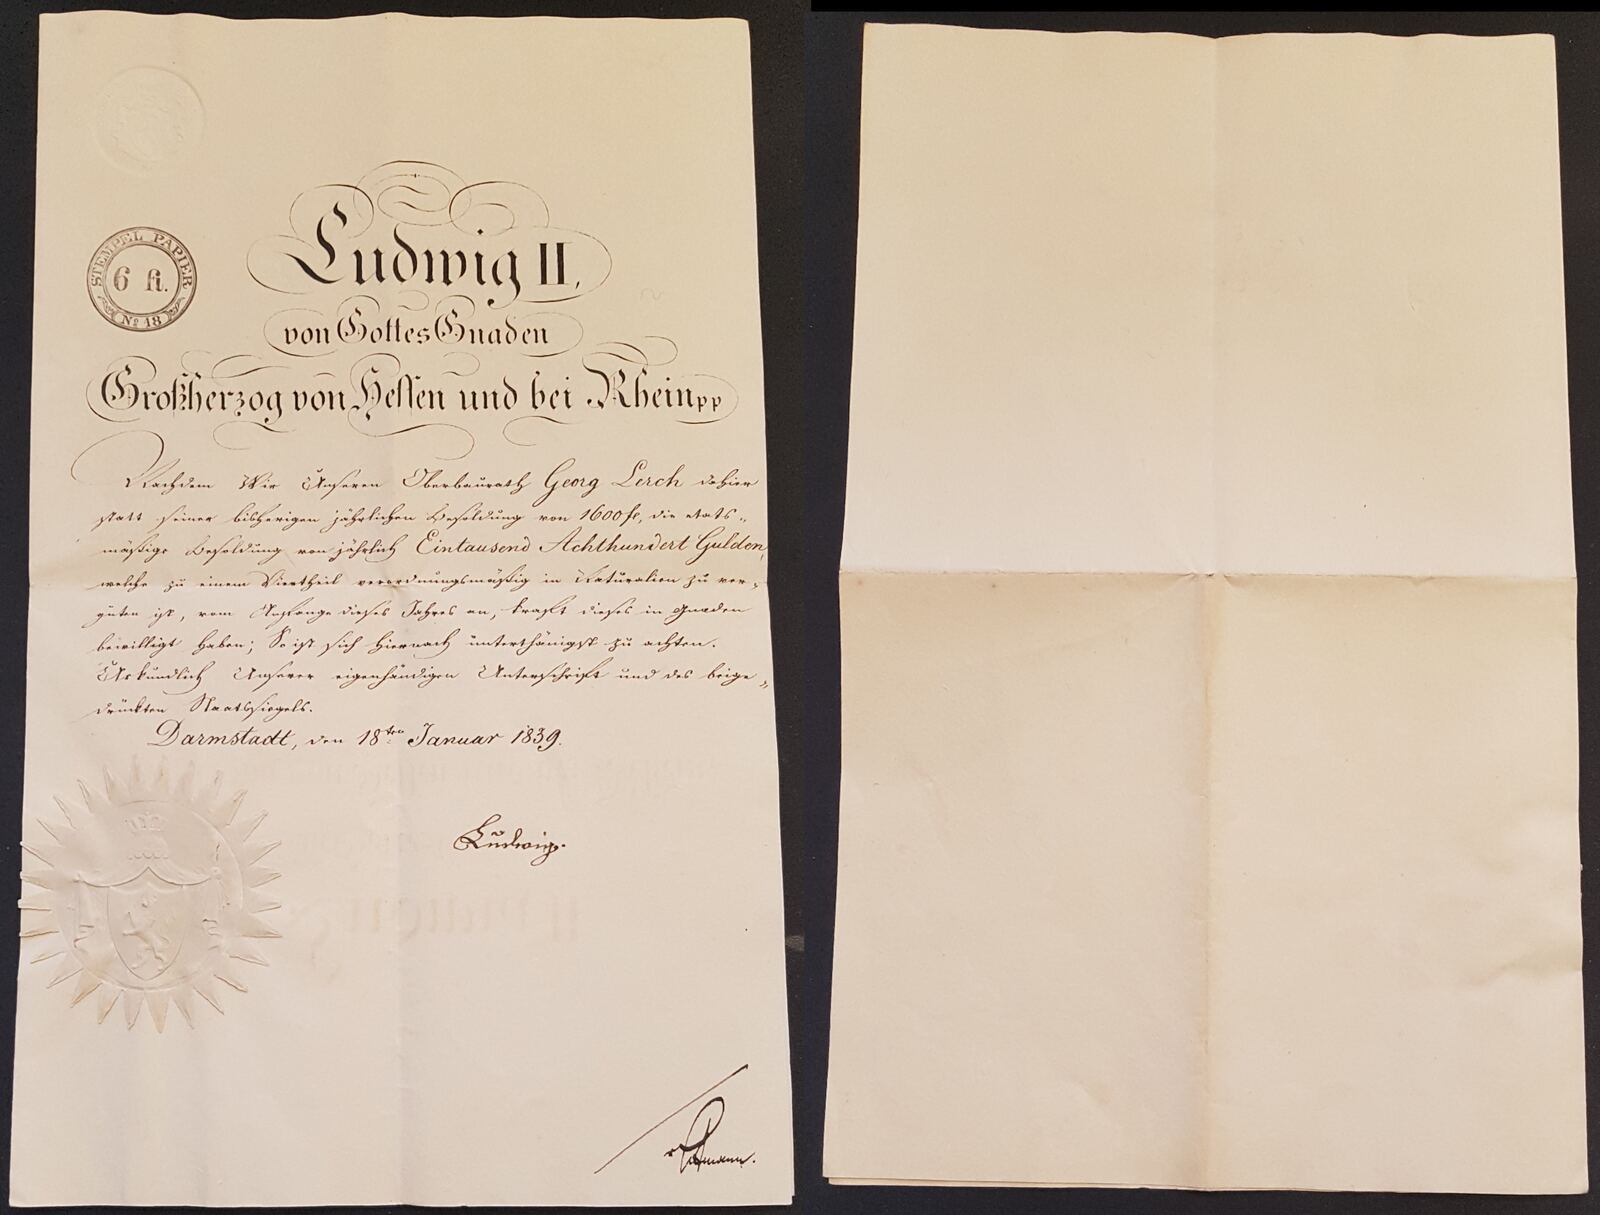 STEMPEL PAPIER
6 fl.
No 18
Ludwig II,
von Gottes Gnaden
Großherzog von Hessen und bei Rhein pp
Nachdem Wir Unseren Oberbaurath Georg Lerch dahier
statt seiner bisherigen jährlichen Besoldung von 1600 fl, die etats-
mäßige Besoldung von jährlich Eintausend Achthundert Gulden,
welche zu einem Viertheil verordnungsmäßig in Naturalien zu ver-
güten ist, vom Anfange dieses Jahres an, kraft dieses in Gnaden
bewilligt haben; So ist sich hiernach unterthänigst zu achten.
Urkundlich Unserer eigenhändigen Unterschrift und des beige-
drückten Staatssiegels.
Darmstadt, den 18ten Januar 1839.
Ludwig.